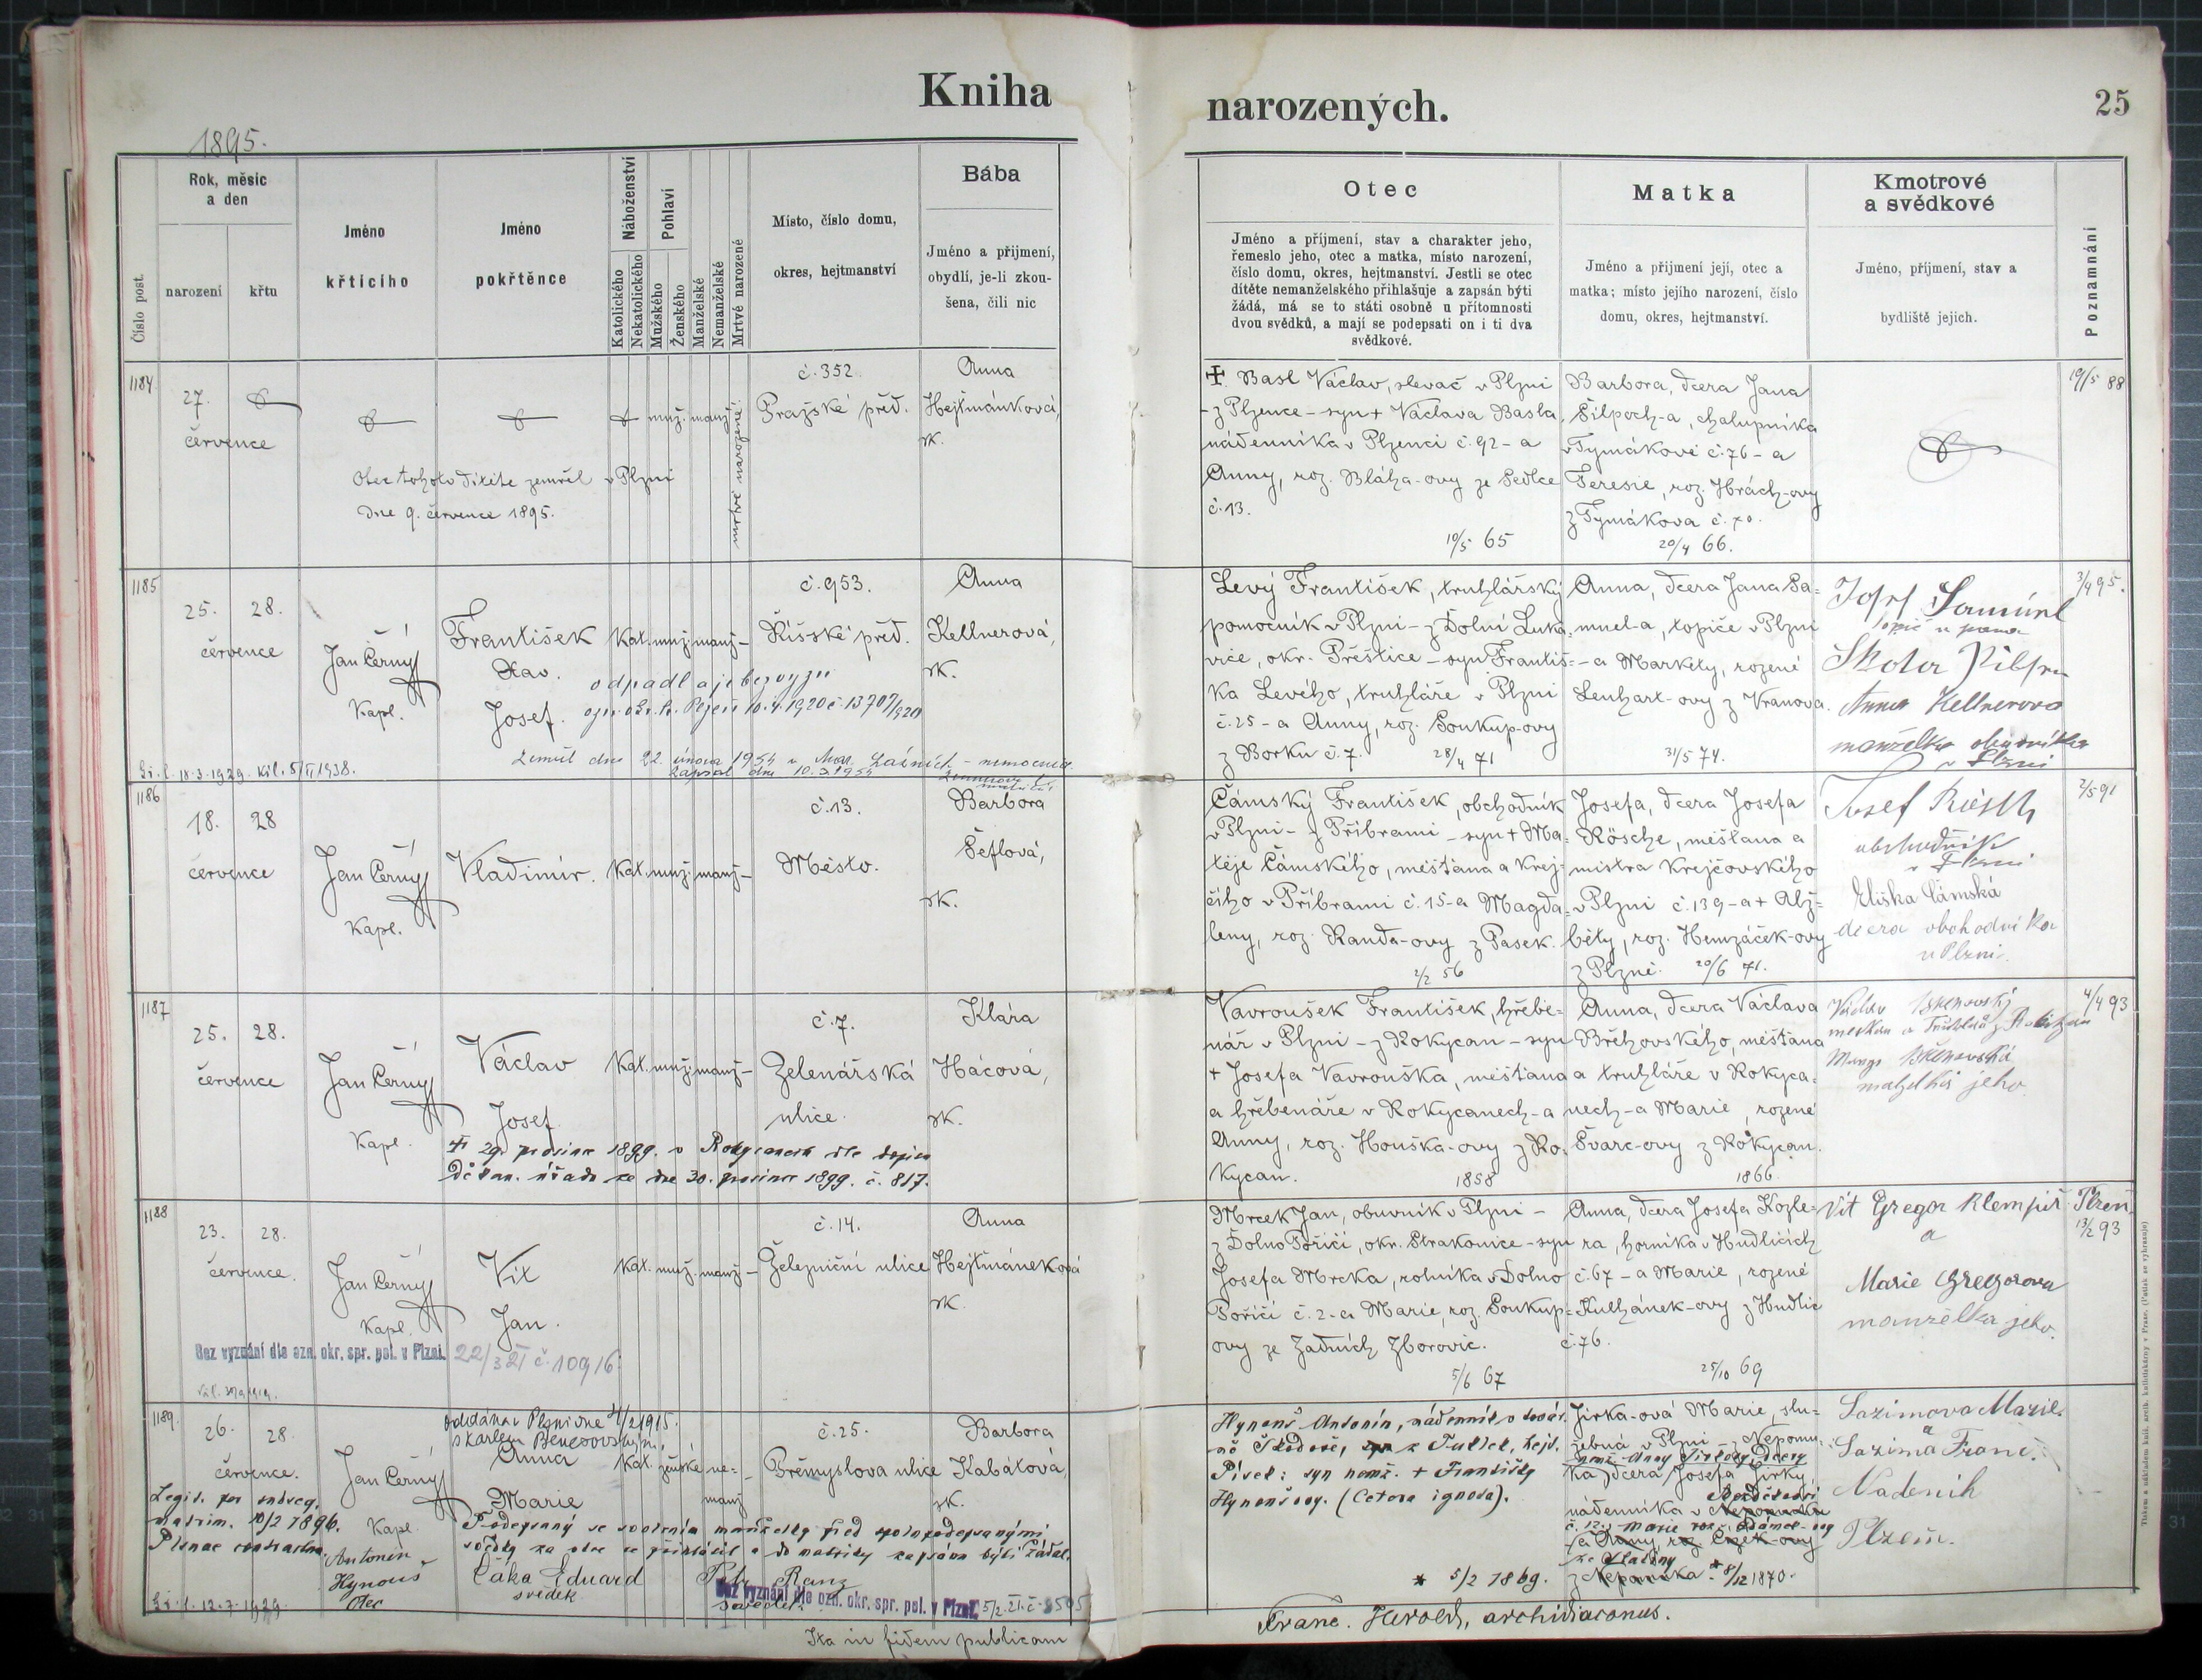 Kniha
narozených.
25
1895.
Číslo post.
Rok, měsíc
a den
narození
křtu
Jméno
křticího
Jméno
pokřtěnce
Náboženství
Katolického
Nekatolického
Pohlaví
Mužského
Ženského
Manželské
Nemanželské
Mrtvě narozené
Místo, číslo domu,
okres, hejtmanství
Bába
Jméno a přijmení,
obydlí, je-li zkou-
šena, čili nic
Otec
Jméno a příjmení, stav a charakter jeho,
řemeslo jeho, otec a matka, místo narození,
číslo domu, okres, hejtmanství. Jestli se otec
dítěte nemanželského přihlašuje a zapsán býti
žádá, má se to státi osobně u přítomnosti
dvou svědků, a mají se podepsati on i ti dva
svědkové.
Matka
Jméno a přijmení její, otec a
matka; místo jejího narození, číslo
domu, okres, hejtmanství.
Kmotrové
a svědkové
Jméno, příjmení, stav a
bydliště jejich.
Poznamnání
1184
27.
července
muž. manž.
mrtvě narozené.
č. 352
Pražské před.
Anna
Hejtmánková,
zk.
Otec tohoto dítěte zemřel v Plzni
dne 9. července 1895.
Basl Václav, slevač v Plzni
- z Plzence - syn + Václava Basla,
nádenníka v Plzenci č. 92 - a
Anny, roz. Bláha-ovy ze Sedlce
č. 13.
10/5 65
Barbora, dcera Jana
Šilpoch-a, chalupníka
v Tymákově č. 76 - a
Teresie, roz. Hrách-ovy
z Tymákova č. 70.
20/4 66.
19/5 88
1185
25. 28.
července
Jan Černý
Kapl.
František
Xav.
Josef.
Kat. muž. manž.
č. 953.
Říšské před.
Anna
Kellnerová,
zk.
odpadl a je bez vyzn
10.4.1920 č. 13707/1920
Zemřel dne 22. února 1954 v Mar. Lázních - nemocnice
zapsal dne 10.3.1954
18.3.1929.
Levý František, truhlářský
pomocník v Plzni - z Dolní Luka-
vice, okr. Přeštice - syn Františ-
ka Levého, truhláře v Plzni
č. 25 - a Anny, roz. Soukup-ovy
z Borku č. 7.
28/4 71
Anna, dcera Jana Sa-
muel-a, topiče v Plzni
- a Markéty, rozené
Lenhart-ovy z Vranova.
31/5 74.
Anna Kellnerova
manželka obuvníka
v Plzni
3/4 95.
1186
18. 28
července
Jan Černý
Kapl.
Vladimír.
Kat. muž. manž.
č. 13.
Město.
Barbora
Šeflová,
zk.
Čámský František, obchodník
v Plzni - z Příbrami - syn + Ma-
těje Čámského, měšťana a krej-
čího v Příbrami č. 15 - a Magda-
leny, roz. Randa-ovy z Pasek.
2/2 56
Josefa, dcera Josefa
Rösche, měšťana a
mistra krejčovského
v Plzni č. 139 - a + Alž-
běty, roz. Hemzáček-ovy
z Plzně. 20/6 71.
Josef Rösch
obchodník
v Plzni
Eliška Čámská
dcera obchodníka
v Plzni.
2/5 91
1187
25. 28.
července
Jan Černý
Kapl.
Václav
Josef
Kat. muž. manž.
č. 7.
Zelenářská
ulice.
Klára
Hácová,
zk.
+ 29. prosince 1899. v Rokycanech dle dopisu
Děkan. úřadu ze dne 30. prosince 1899. č. 817.
Vavroušek František, hřebe-
nář v Plzni - z Rokycan - syn
+ Josefa Vavrouška, měšťana
a hřebenáře v Rokycanech - a
Anny, roz. Houška-ovy z Ro-
kycan.
1858
Anna, dcera Václava
Břehovského, měšťana
a truhláře v Rokyca-
nech - a Marie, rozené
Švarc-ovy z Rokycan.
1866.
manželka jeho
4/4 93
1188
23. 28.
července.
Jan Černý
Kapl.
Vít
Jan.
Kat. muž. manž.
č. 14.
Železniční ulice
Anna
Hejtmáneková
zk.
Bez vyznání dle ozn. okr. spr. pol. v Plzni. 22/3 21 č. 10916
Mrcek Jan, obuvník v Plzni -
z Dolno Poříčí, okr. Strakonice - syn
Josefa Mrcka, rolníka v Dolno
Poříčí č. 2 - a Marie, roz. Soukup-
ovy ze Zadních Zborovic.
5/6 67
Anna, dcera Josefa Kozle-
ra, horníka v Hudlicích
č. 67 - a Marie, rozené
Kulhánek-ovy z Hudlic
č. 76.
25/10 69
Vít Gregor klempíř Plzeň
a
Marie Gregorova
manželka jeho.
13/2 93
1189.
26. 28.
července.
Jan Černý
Kapl.
oddána v Plzni dne 4/2 1915.
s Karlem Benešovským.
Anna
Marie
Kat. ženské ne-
manž
č. 25.
Přemyslova ulice
Barbora
Kabátová,
zk.
Legit. per subseq.
matrim. 10/2 1896.
Plsnae contractum.
Podepsaný se svolením manželky před spolupodepsanými
svědky za otce se přihlásil a do matriky zapsána býti žádal.
Antonín
Hynouš
otec
Čáka Eduard
svědek
Petr Ranz
svědek.
Bez vyznání dle ozn. okr. spr. pol. v Plzni. 5/2.21.č. 8505
Hynouš Antonín, nádenník v továr-
ně Škodově, z Putick, hejt.
Písek; syn nemž. + Františky
Hynoušovy. (Cetera ignota).
* 5/2 1869.
Jirka-ová Marie, slu-
žebná v Plzni - z Nepomu-
ka, dcera Josefa Jirky,
nádenníka v Nepomuku
* 8/12 1870.
Sazimova Marie
a
Sazima Franc.
Nadeník
Plzeň.
Ita in fidem publicam
Franc. Herold, archidiaconus.